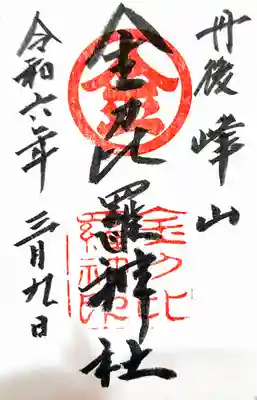 丹後峰山
金刀比羅神社
令和六年 三月九日
金
金刀比
羅神社